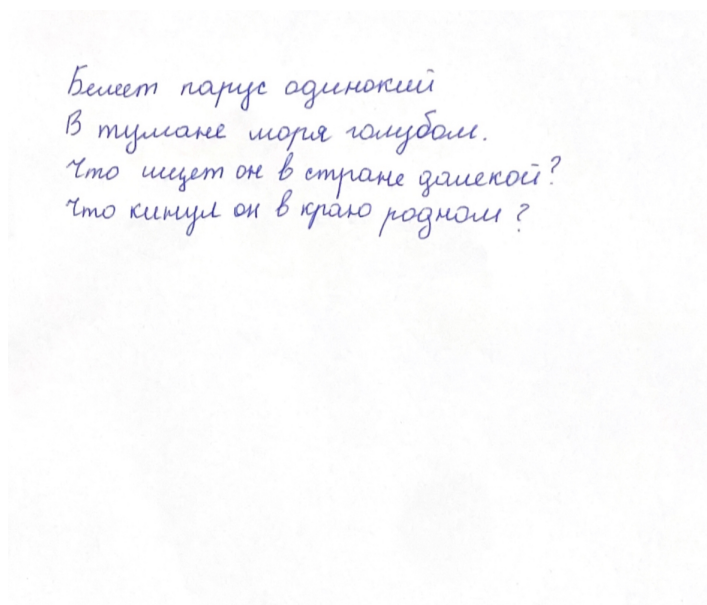 Белеет парус одинокий
В тумане моря голубом.
Что ищет он в стране далекой?
Что кинул он в краю родном?